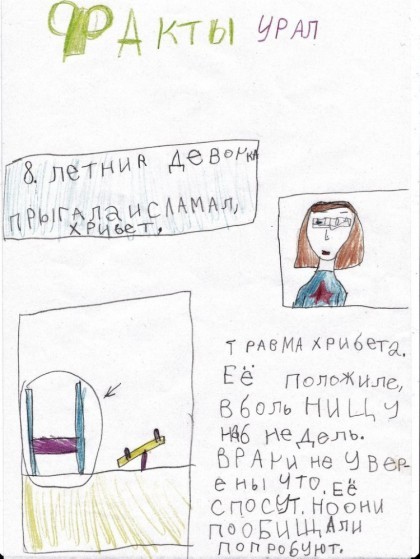 ФАКТЫ УРАЛ
8. ЛЕТНИЯ ДЕВОЧКА
ПРЫГАЛА И СЛАМАЛ,
ХРИБЕТ.
ТРАВМА ХРИБЕТА.
ЕЁ ПОЛОЖИЛЕ,
В БОЛЬНИЦУ
НА 6 НЕДЕЛЬ.
ВРАЧИ НЕ УВЕР
ЕНЫ ЧТО. ЕЁ
СПОСУТ. НО ОНИ
ПООБИЩАЛИ
ПОПРОБУЮТ.